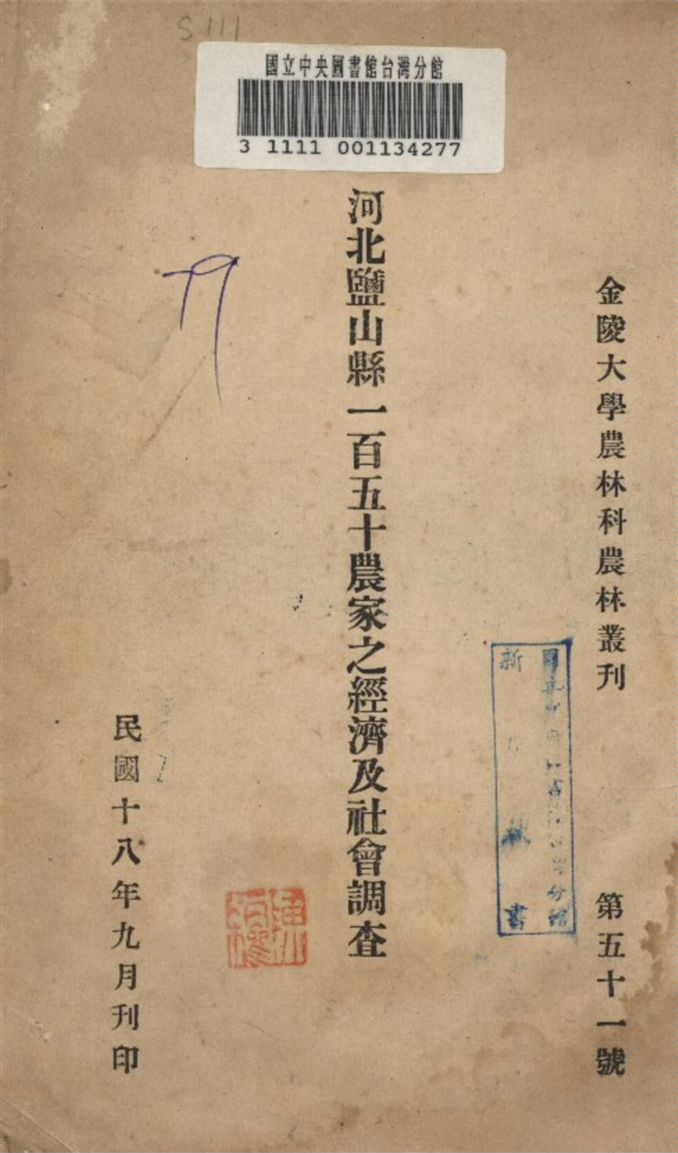 S111
國立中央圖書館台灣分館
3 1111 001134277
金陵大學農林科農林叢刊 第五十一號
河北鹽山縣一百五十農家之經濟及社會調查
民國十八年九月刊印
分館
新 藏書